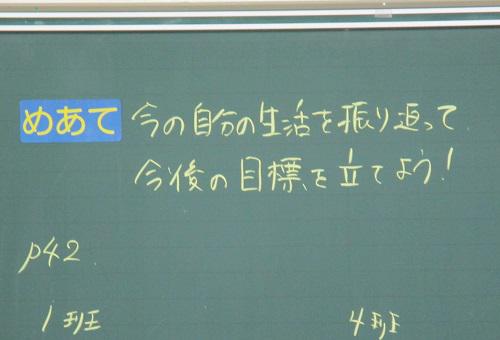 めあて 今の自分の生活を振り返って
今後の目標を立てよう!
p42.
1班 4班